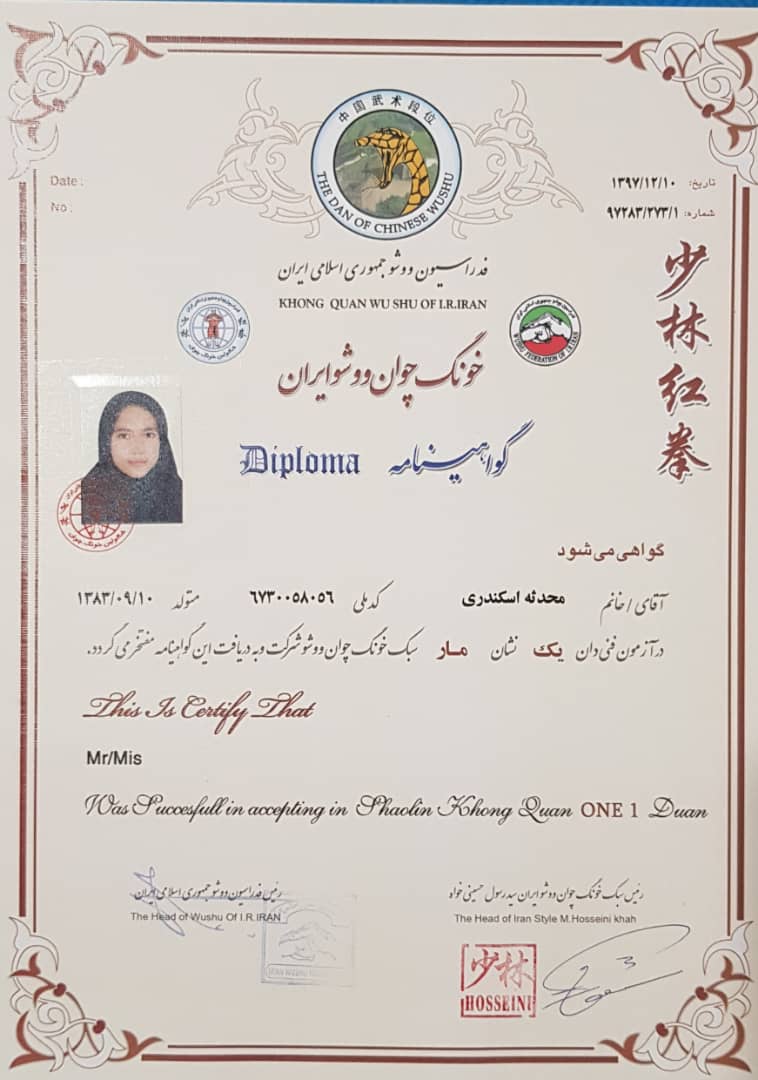 中国武术段位
THE DAN OF CHINESE WUSHU
Date :
No :
تاریخ: ۱۳۹۷/۱۲/۱۰
شماره: ۹۷۲۸۳/۲۷۳/۱
فدراسیون ووشو جمهوری اسلامی ایران
KHONG QUAN WU SHU OF I.R.IRAN
WUSHU FEDERATION OF I.R.IRAN
خونگ چوان ووشو ایران
少林红拳
Diploma گواهینامه
گواهی می شود
آقای / خانم محدثه اسکندری کد ملی ۶۷۳۰۰۵۸۰۵۶ متولد ۱۳۸۳/۰۹/۱۰
در آزمون فنی دان یک نشان مار سبک خونگ چوان ووشو شرکت و به دریافت این گواهینامه مفتخر می گردد.
This Is Certify That
Mr/Mis
Was Succesfull in accepting in Shaolin Khong Quan ONE 1 Duan
رئیس فدراسیون ووشو جمهوری اسلامی ایران
The Head of Wushu Of I.R.IRAN
رئیس سبک خونگ چوان ووشو ایران سید رسول حسینی خواه
The Head of Iran Style M.Hosseini khah
少林
HOSSEINI